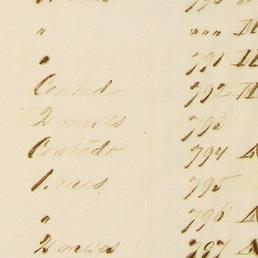 "
" 791
Contado 792
2 meses 793
Contado 794
1. mes 795
" 796
2 meses 797